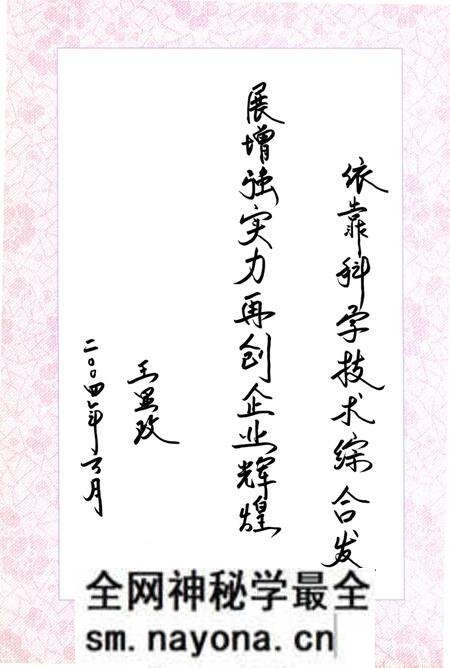 依靠科学技术综合发
展增强实力再创企业辉煌
王显政
二〇〇四年六月
全网神秘学最全
sm.nayona.cn